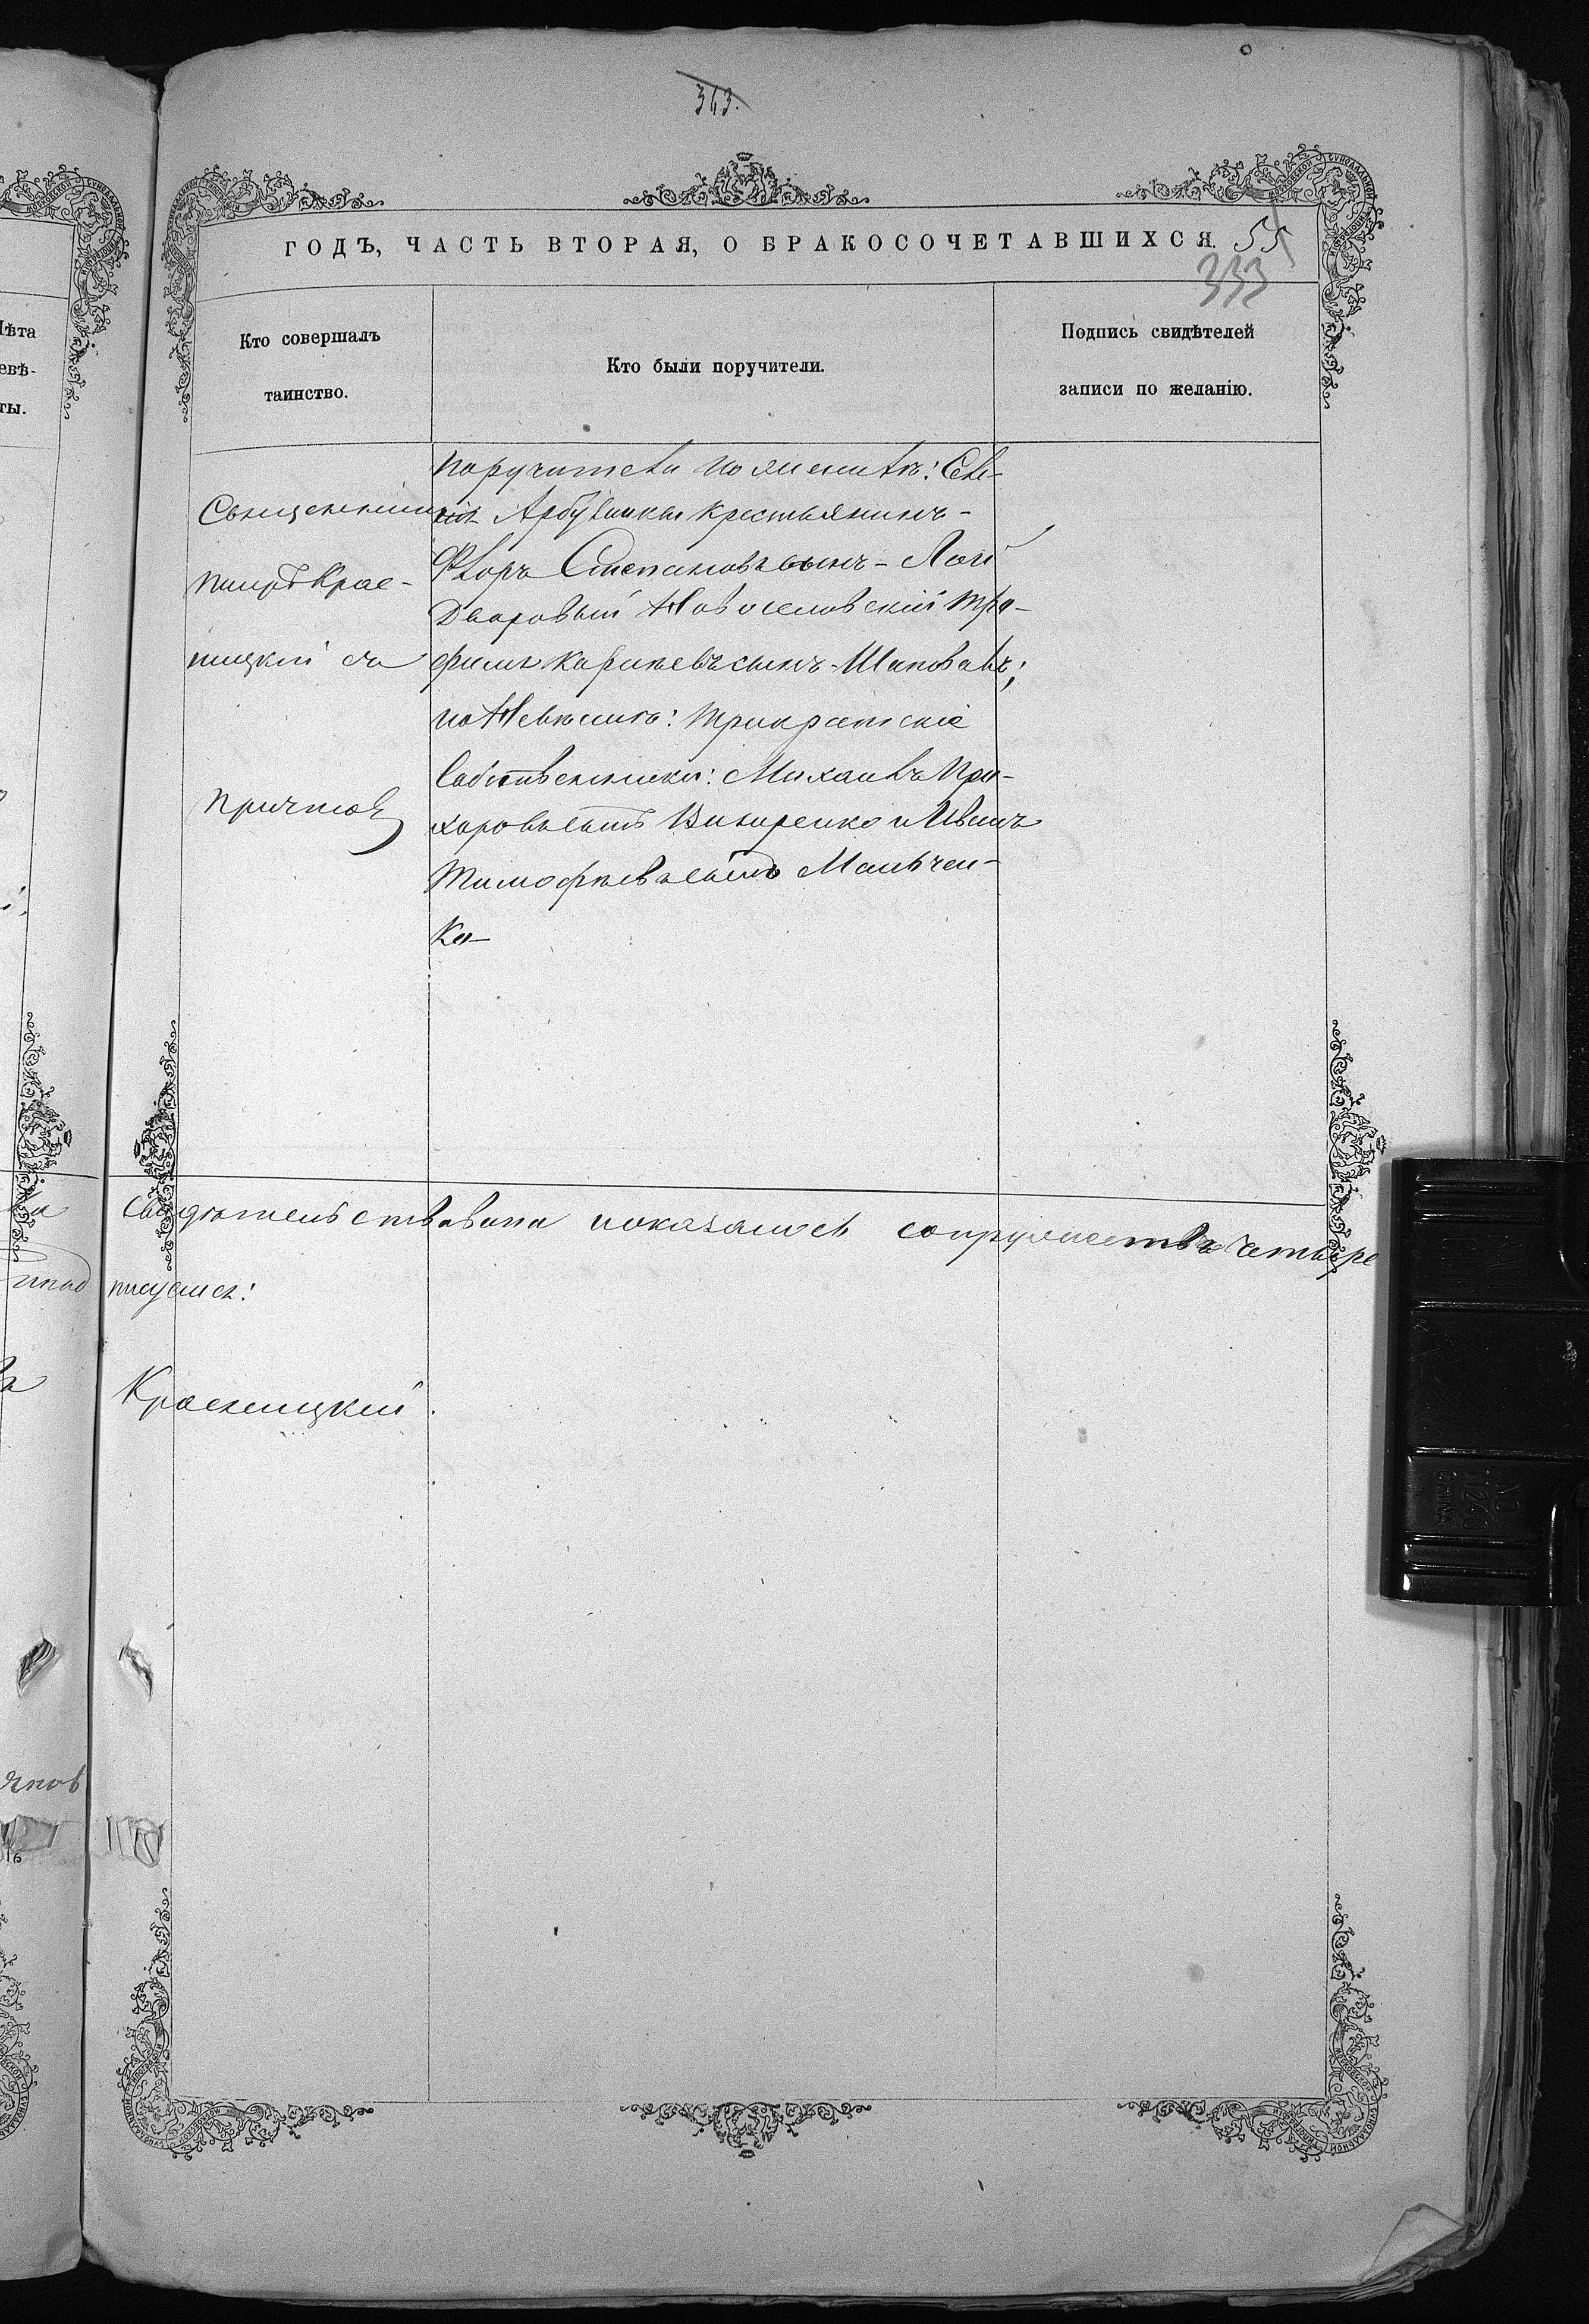 363.
ГОДЪ, ЧАСТЬ ВТОРАЯ, О БРАКОСОЧЕТАВШИХСЯ. 55
333
Кто совершалъ
таинство.
Кто были поручители.
Подпись свидѣтелей
записи по желанію.
Священникъ
Петръ Крас-
ницкій съ
причтомъ
Поручители по женихѣ: Сель-
скій Арбузинки крестьянинъ
Флоръ Степановъ сынъ - Лой
Дворовый Новоселовскій Тро-
фимъ Карпіевъ сынъ - Шаповалъ;
по Невѣстѣ: Трикратскіе
Собственники: Михаилъ При-
хоровъ сынъ Визиренко и Иванъ
Тимофѣевъ сынъ Маньчен-
ко
свидѣтельствована показалось супружествъ четыре
писуемся:
Красницкій